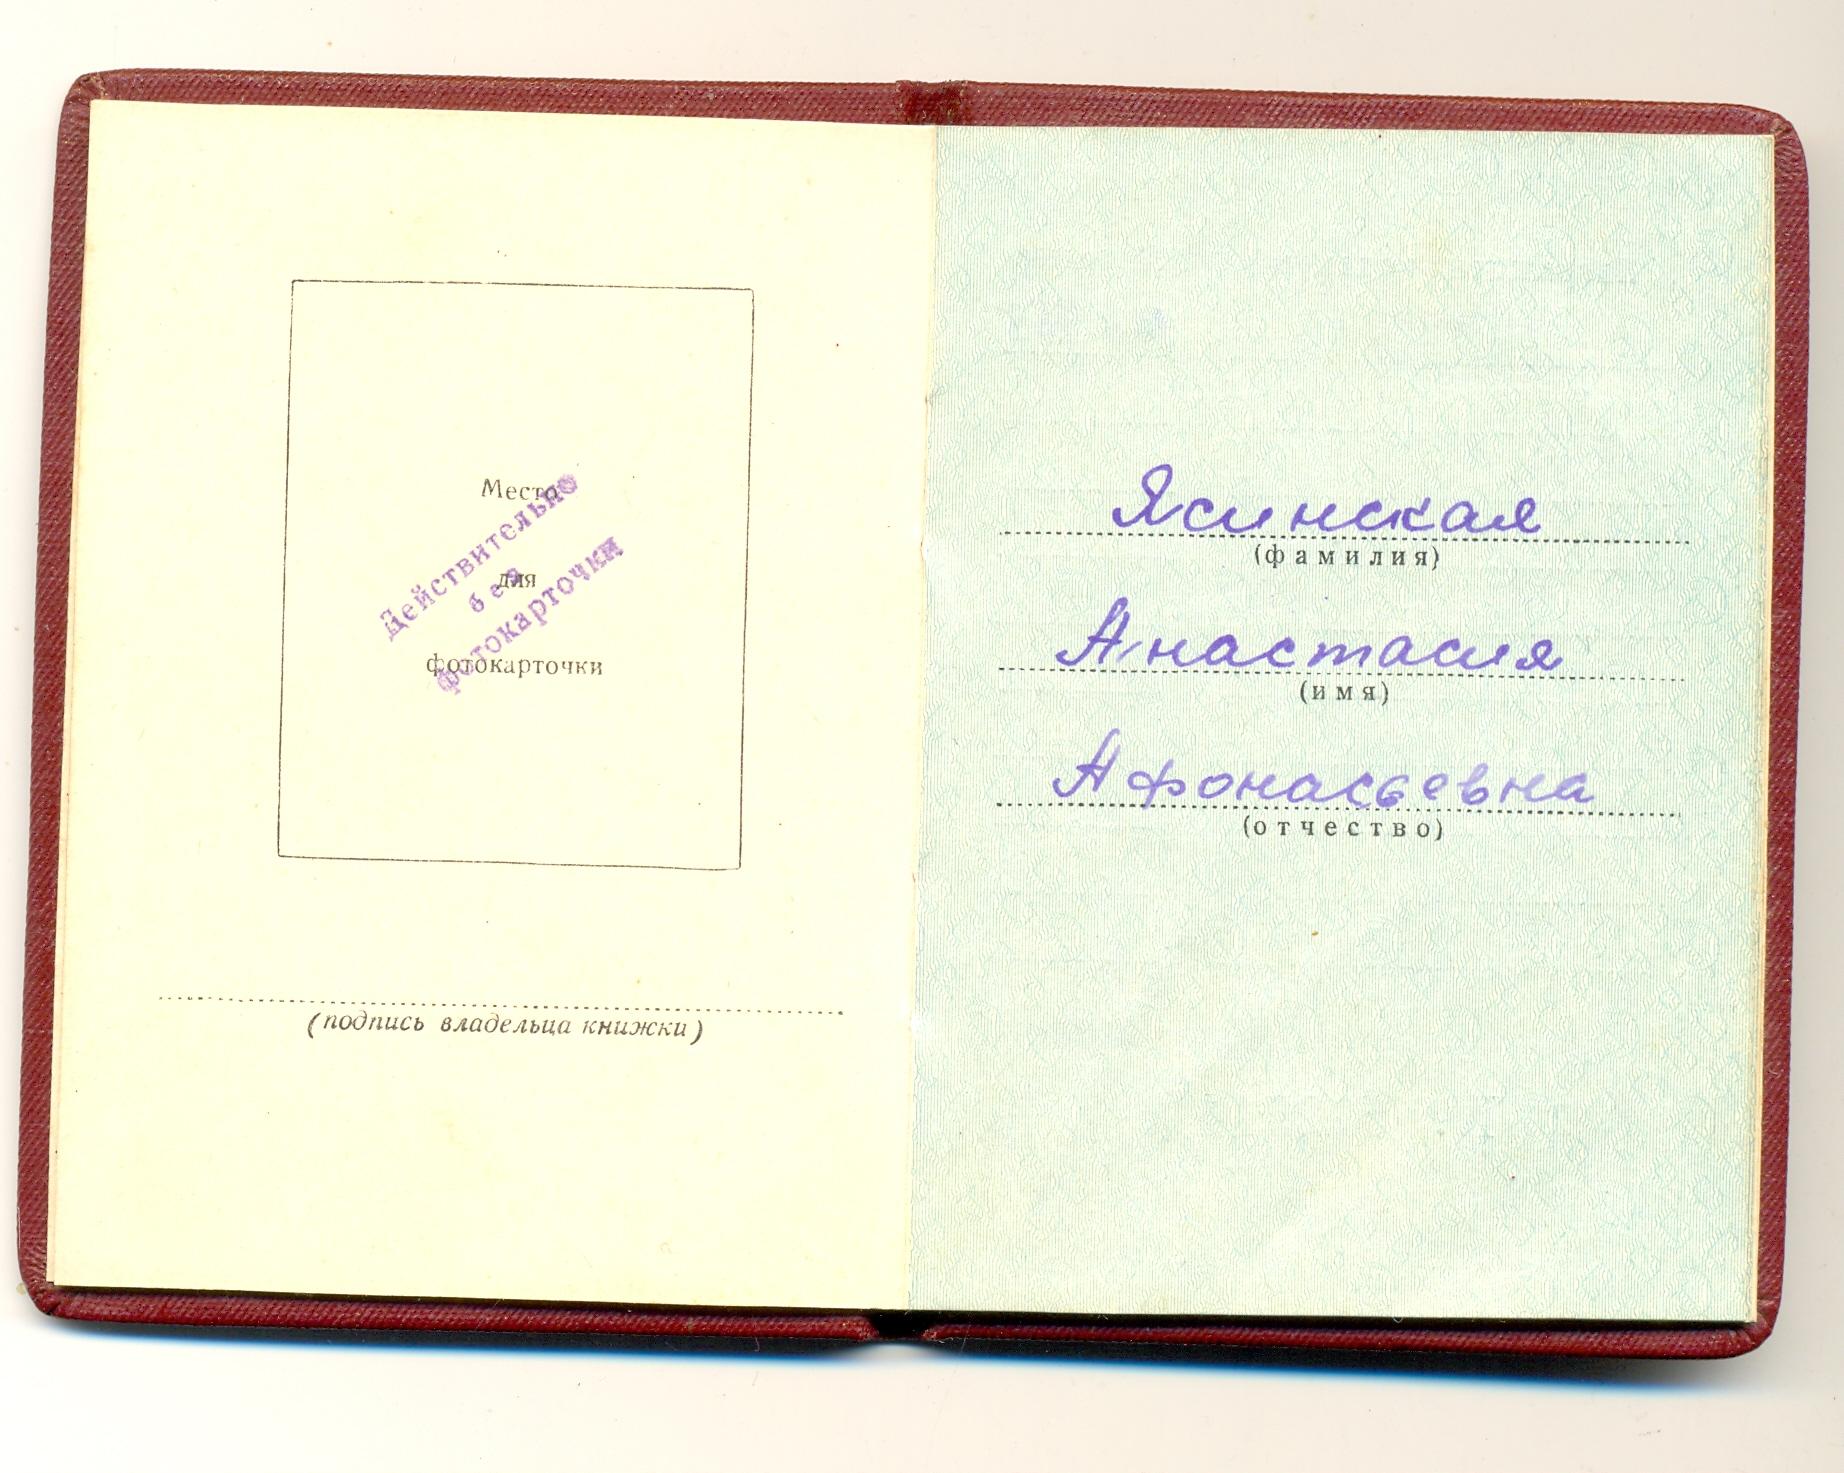 Место
для
фотокарточки
Действительно
без
фотокарточки
(подпись владельца книжки)
Ясинская
(фамилия)
Анастасия
(имя)
Афонасьевна
(отчество)